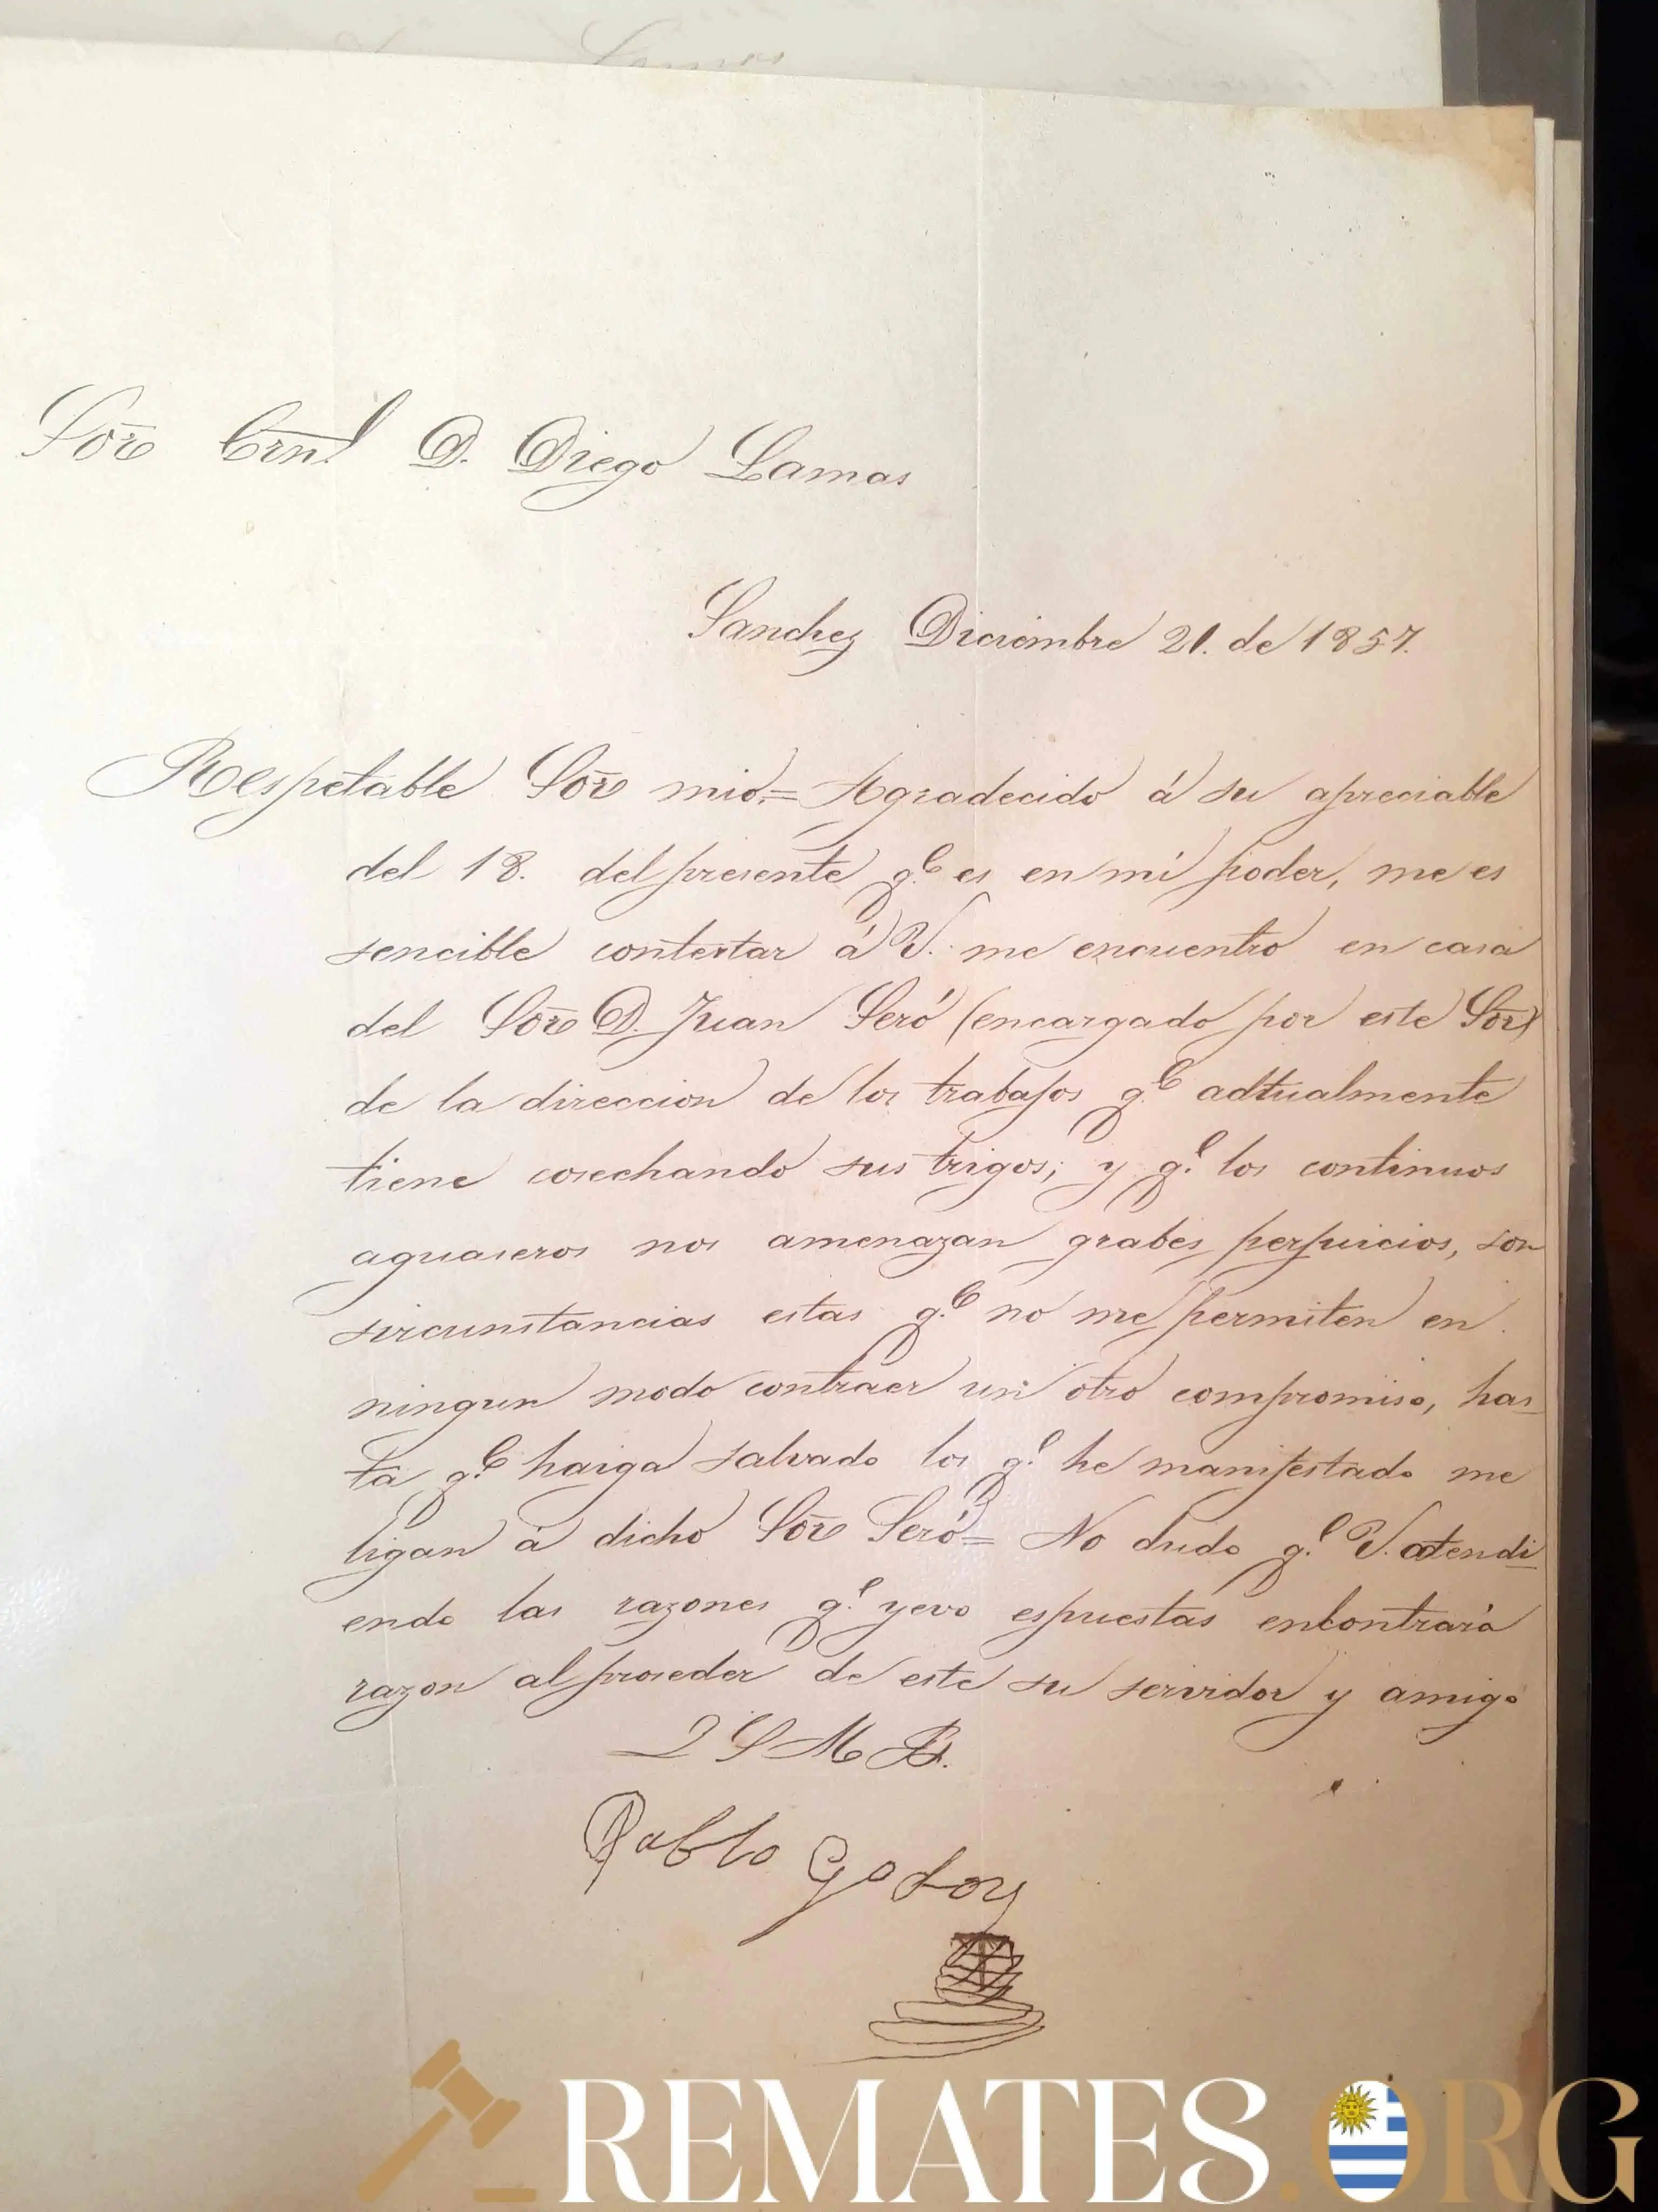 Lamas
Sōr Crnl D. Diego Lamas
Sanchez Diciembre 21. de 1857.
Respetable Sōr mio.= Agradecido á su apreciable
del 18. del presente q.e es en mi poder, me es
sencible contestar á V. me encuentro en casa
del Sōr D. Juan Seró (encargado por este Sōr)
de la direccion de los trabajos q.e adtualmente
tiene cosechando sus trigos; y q.e los continuos
aguaseros nos amenazan grabes perjuicios, son
sircunstancias estas q.e no me permiten en
ningun modo contraer un otro compromiso, has_
ta q.e haiga salvado los q.e he manifestado me
ligan á dicho Sōr Seró= No dudo q.e V. atendi_
endo las razones q.e yevo espuestas encontrará
razon al proseder de este su servidor y amigo
Q S M B.
Pablo Godoy
REMATES.ORG